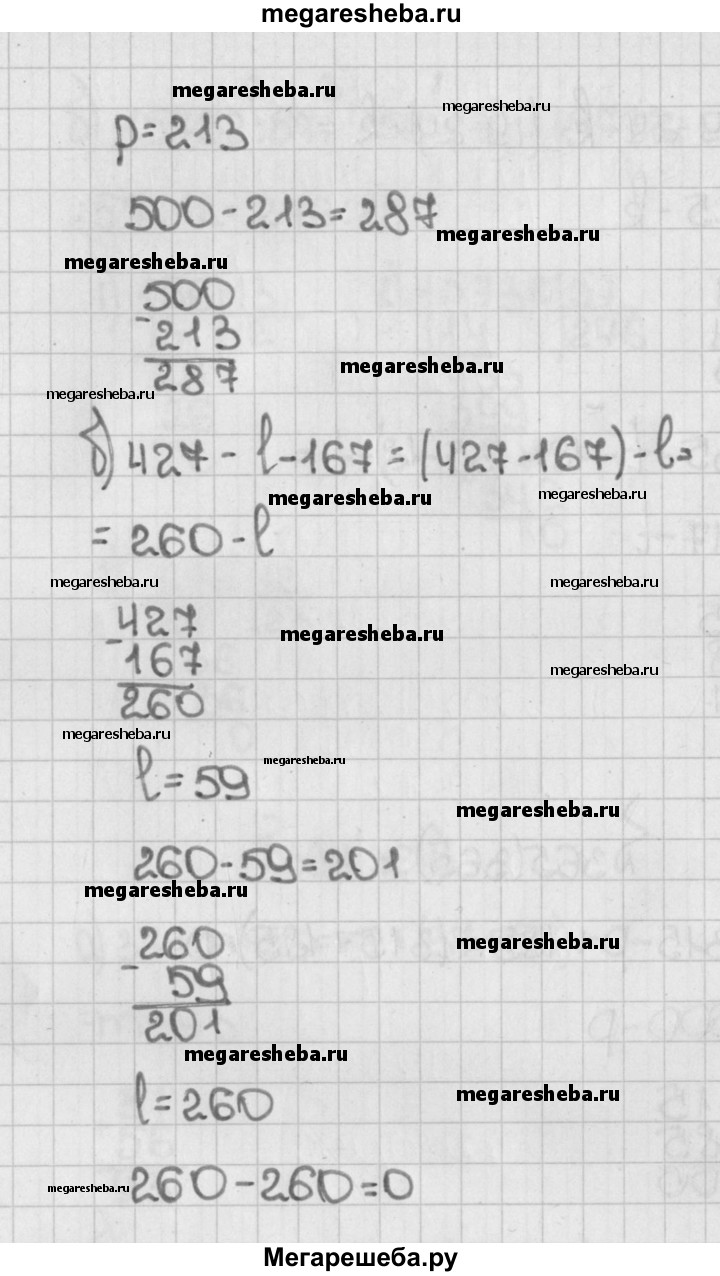 megaresheba.ru
megaresheba.ru
megaresheba.ru
p=213
500-213=287
megaresheba.ru
megaresheba.ru
500
-213
287
megaresheba.ru
megaresheba.ru
б) 427-l-167=(427-167)-l=
megaresheba.ru
megaresheba.ru
=260-l
megaresheba.ru
megaresheba.ru
427
-167
260
megaresheba.ru
megaresheba.ru
megaresheba.ru
megaresheba.ru
l=59
megaresheba.ru
260-59=201
megaresheba.ru
260
-59
201
megaresheba.ru
megaresheba.ru
l=260
megaresheba.ru
megaresheba.ru
260-260=0
Мегарешеба.ру